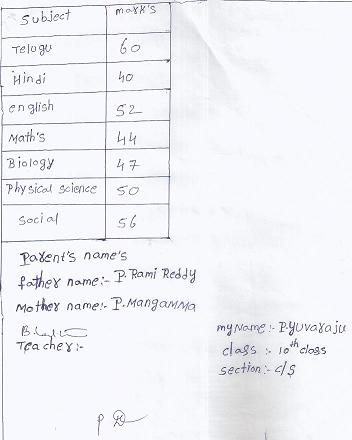 Subject mark's
Telogu 60
Hindi 40
english 52
Math's 44
Biology 47
Physical science 50
Social 56
Parent's name's
father name:- P. Rami Reddy
Mother name:- P. Mangamma
Teacher:-
my Name:- P.Yuvaraju
class :- 10th class
section:- C/S